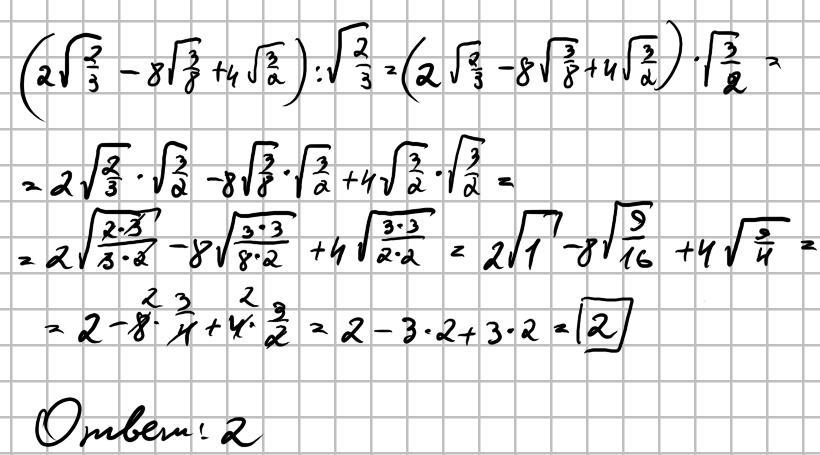 (2√(2/3) - 8√(3/8) + 4√(3/2)) : √(2/3) = (2√(2/3) - 8√(3/8) + 4√(3/2)) · √(3/2) =
= 2√(2/3) · √(3/2) - 8√(3/8) · √(3/2) + 4√(3/2) · √(3/2) =
= 2√((2·3)/(3·2)) - 8√((3·3)/(8·2)) + 4√((3·3)/(2·2)) = 2√1 - 8√(9/16) + 4√(9/4) =
= 2 - 8² · 3/4 + 4² · 3/2 = 2 - 3·2 + 3·2 = 2
Ответ: 2